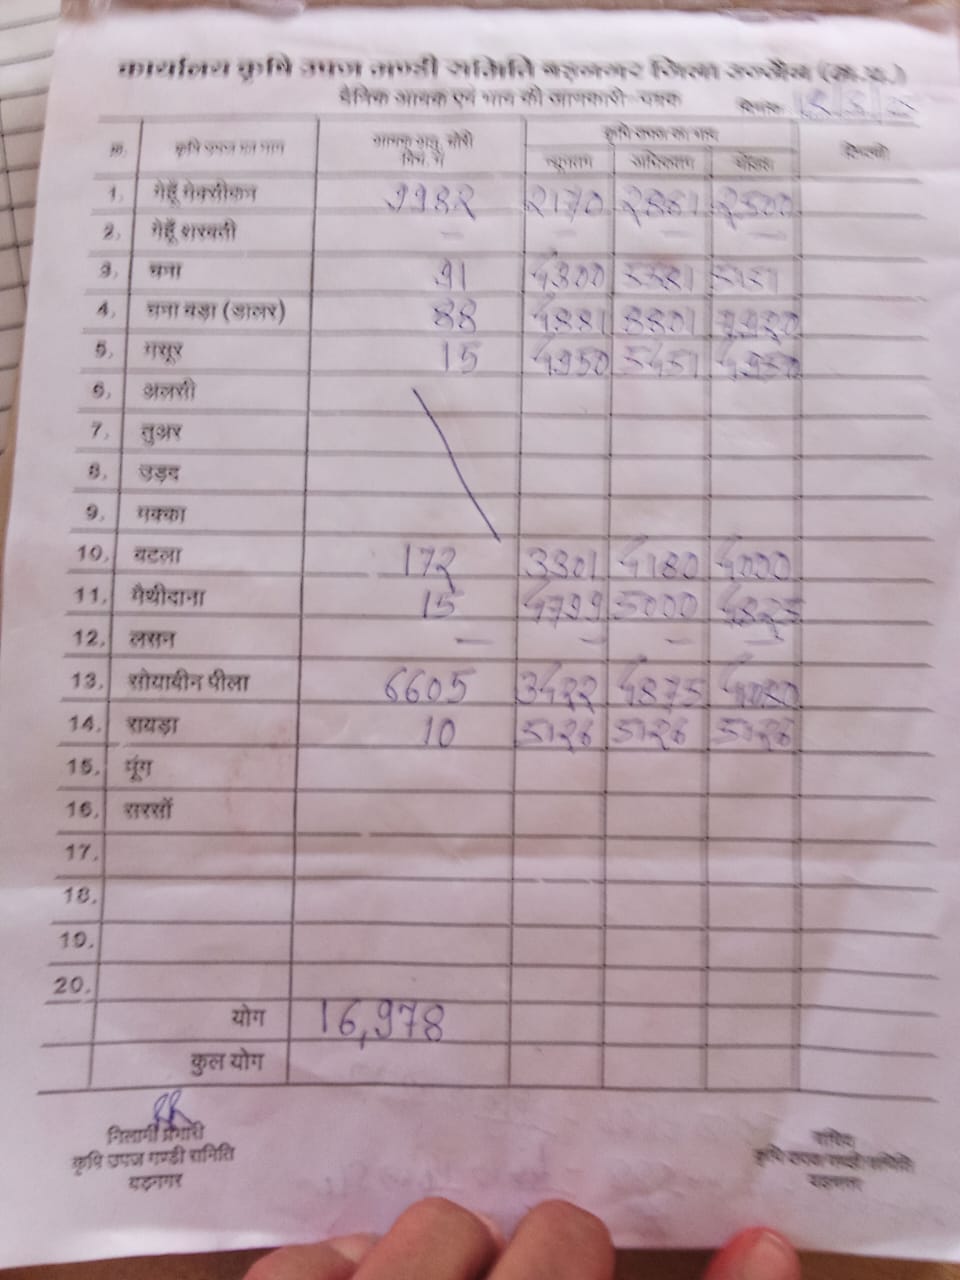 कार्यालय कृषि उपज मण्डी समिति बड़नगर जिला उज्जैन (म.प्र.)
दैनिक आवक एवं भाव की जानकारी-पत्रक दिनांक
क्र. कृषि उपज का नाम कृषि उपज का भाव
न्यूनतम अधिकतम मॉडल
1. गेहूँ मेक्सीकन 9982 2170 2881 2500
2. गेहूँ शरबती — — — —
3. चना 91 4300 5381 5151
4. चना बड़ा (डालर) 88 4881 8801 7920
5. मसूर 15 4950 5451 4950
6. अलसी
7. तुअर
8. उड़द
9. मक्का
10. बटला 172 3301 4180 4000
11. मैथीदाना 15 4799 5000 4825
12. लसन — — — —
13. सोयाबीन पीला 6605 3422 4875
14. रायड़ा 10 5126 5126 5126
15. मूंग
16. सरसों
17.
18.
19.
20.
योग 16,978
कुल योग
निलामी प्रभारी
कृषि उपज मण्डी समिति
बड़नगर
सचिव
कृषि उपज मण्डी समिति
बड़नगर